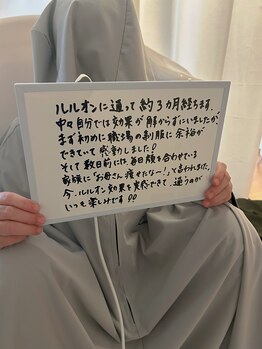 ルルオンに通って約3カ月経ちます。
中々自分では効果が解からずにいましたが、
まず初めに職場の制服に余裕が
できていて感動しました!
そして数日前には毎日顔を合わせている
家族に「お母さん痩せたなー!」と言われました。
今、ルルオン効果を実感できて、通うのが
いつも楽しみです!!